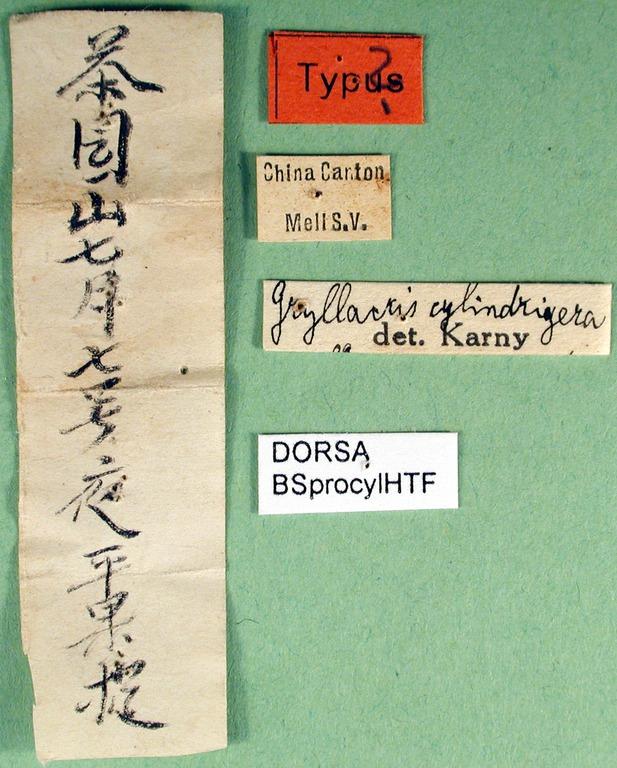 茶园山七月七号夜平果捉
Typus
?
China Canton.
Mell S.V.
Gryllacris cylindrigera
det. Karny
DORSA
BSprocylHTF